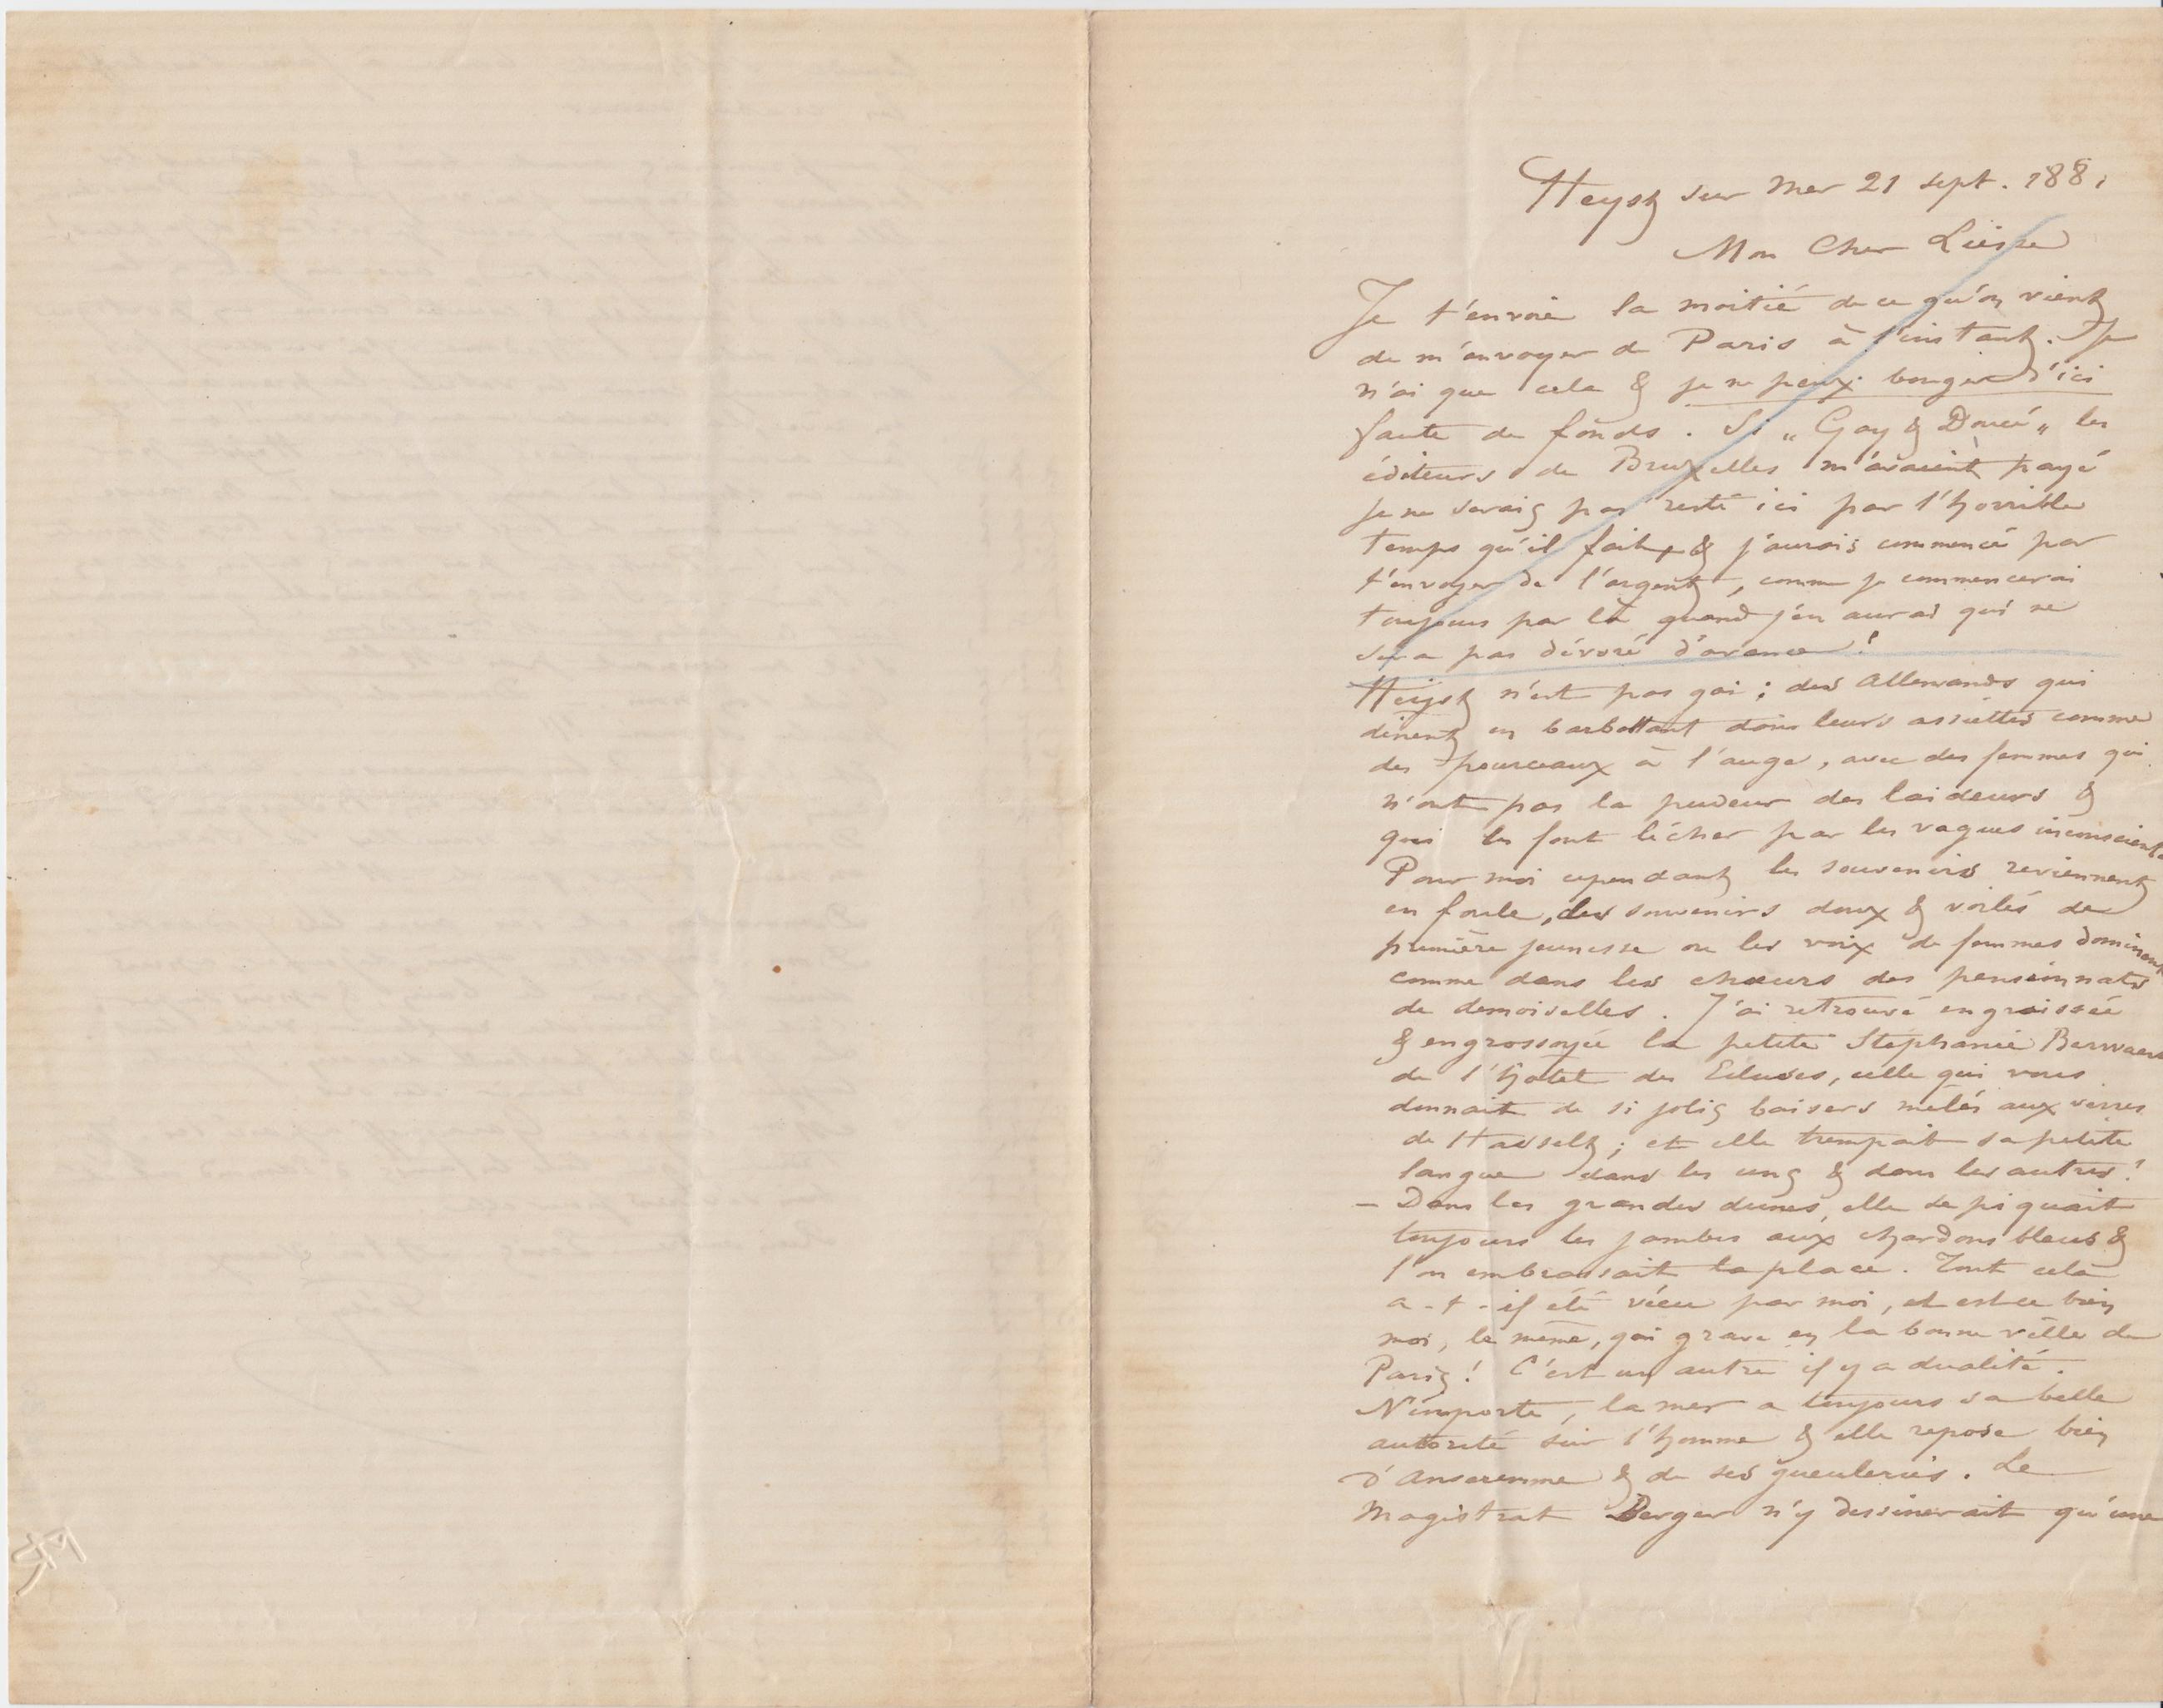 Heyst sur Mer 21 sept. 1881
Mon Cher Liesse
Je t'envoie la moitié de ce qu'on vient
de m'envoyer de Paris à l'instant. Je
n'ai que cela & je ne peux bouger d'ici
faute de fonds. Si „ Gay & Doucé „ les
éditeurs de Bruxelles m'avaient payé
je ne serais pas resté ici par l'horrible
temps qu'il fait & j'aurais commencé par
t'envoyer de l'argent, comme je commencerai
toujours par là quand j'en aurai qui ne
sera pas dévoré d'avance!
Heyst n'est pas gai ; des Allemands qui
dînent en barbottant dans leurs assiettes comme
des pourceaux à l'auge, avec des femmes qui
n'ont pas la pudeur des laideurs &
qui les font lécher par les vagues inconscientes
Pour moi cependant les souvenirs reviennent
en foule, des souvenirs doux & voilés de
première jeunesse ou les voix de femmes dominent
comme dans les chœurs des pensionnats
de demoiselles. J'ai retrouvé engraissée
& engrossoyée la petite Stéphanie
de l'hôtel des Ecluses, celle qui vous
donnait de si jolis baisers mêlés aux verres
de Hasselt ; et elle trempait sa petite
langue dans les uns & dans les autres!
– Dans les grandes dunes, elle se piquait
toujours les jambes aux chardons bleus &
l'on embrassait la place. Tout cela
a-t-il été vécu par moi, et est-ce bien
moi, le même, qui grave en la bonne ville de
Paris! C'est un autre il y a dualité.
N'importe, la mer a toujours sa belle
autorité sur l'homme & elle repose bien
d'Anseremme & de ses gueuleries. Le
Magistrat Berger n'y dessinerait qu'une